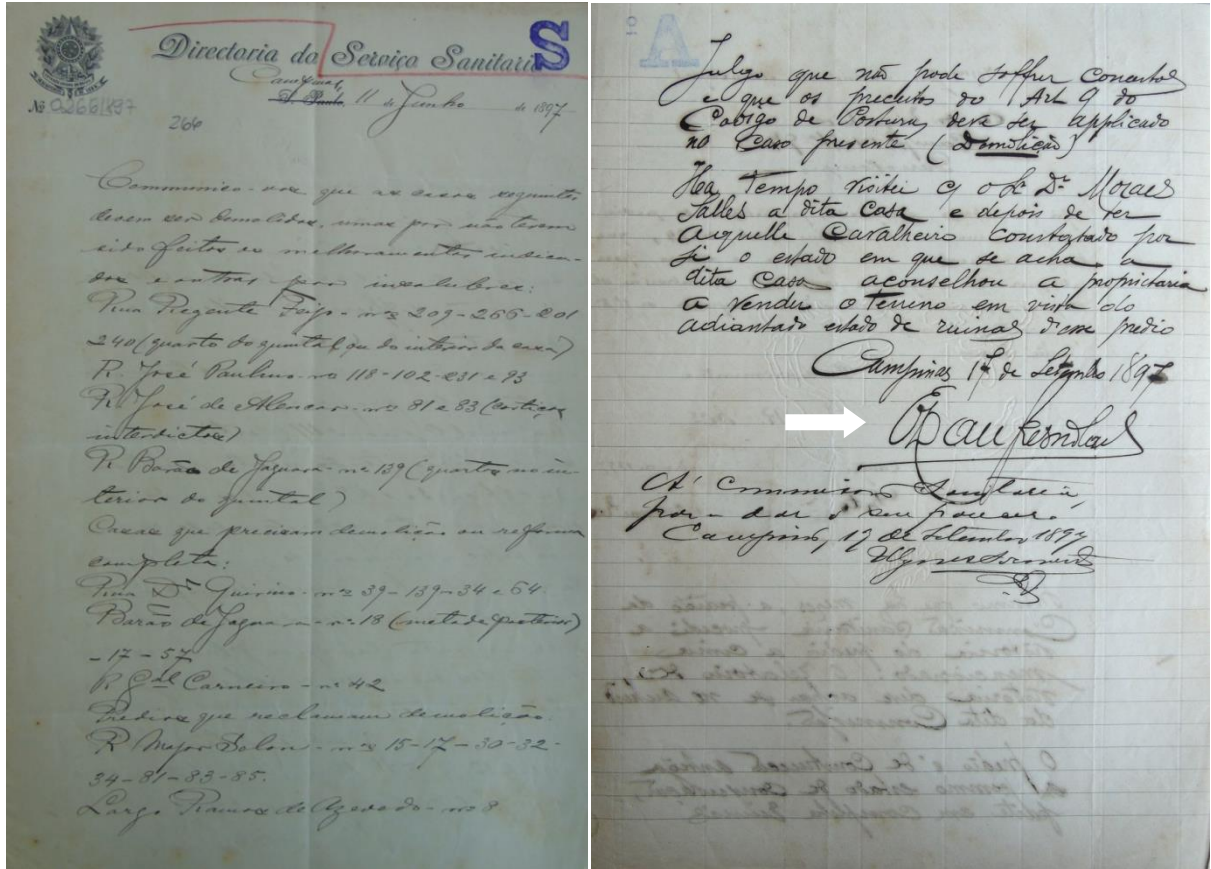 Directoria do Serviço Sanitario
S
Campinas,
S. Paulo, 11 de Junho de 1897
Nº 0266/897
266
Communico-vos que as casas seguintes
devem ser demolidas, umas por não terem
sido feitos os melhoramentos indica-
dos e outras por insalubres:
Rua Regente Feijó - nos 209-266-201
240 (quarto do quintal ou do interior da casa)
R. José Paulino - no 118-102-231 e 93
R. José de Alencar - nos 81 e 83 (cortiços
interdictos)
R. Barão de Jaguara - no 139 (quartos no in-
terior do quintal)
Casas que precisam demolição ou reforma
completa:
Rua Dr Quirino - nos 39-139-34 e 64
Barão de Jaguara - no 18 (metade posterior)
-17-57
R. Gal Carneiro - no 42
Predios que reclamam demolição
R. Major Solon - nos 15-17-30-32-
34-81-83-85.
Largo Ramos de Azevedo - no 8
A
Julgo que não pode soffrer concertos
e que os preceitos do Art 9 do
Codigo de Posturas deve ser applicado
no caso presente (Demolição)
Ha tempo visitei c/ o Sr Dr Moraes
Salles a dita casa e depois de ter
aquelle cavalheiro constatado por
si o estado em que se acha a
dita casa aconselhou a proprietaria
a vender o terreno em vista do
adiantado estado de ruinas desse predio
Campinas 17 de Setembro 1897
Á Commissão Sanitaria,
para dar o seu parecer.
Campinas, 17 de Setembro 1897